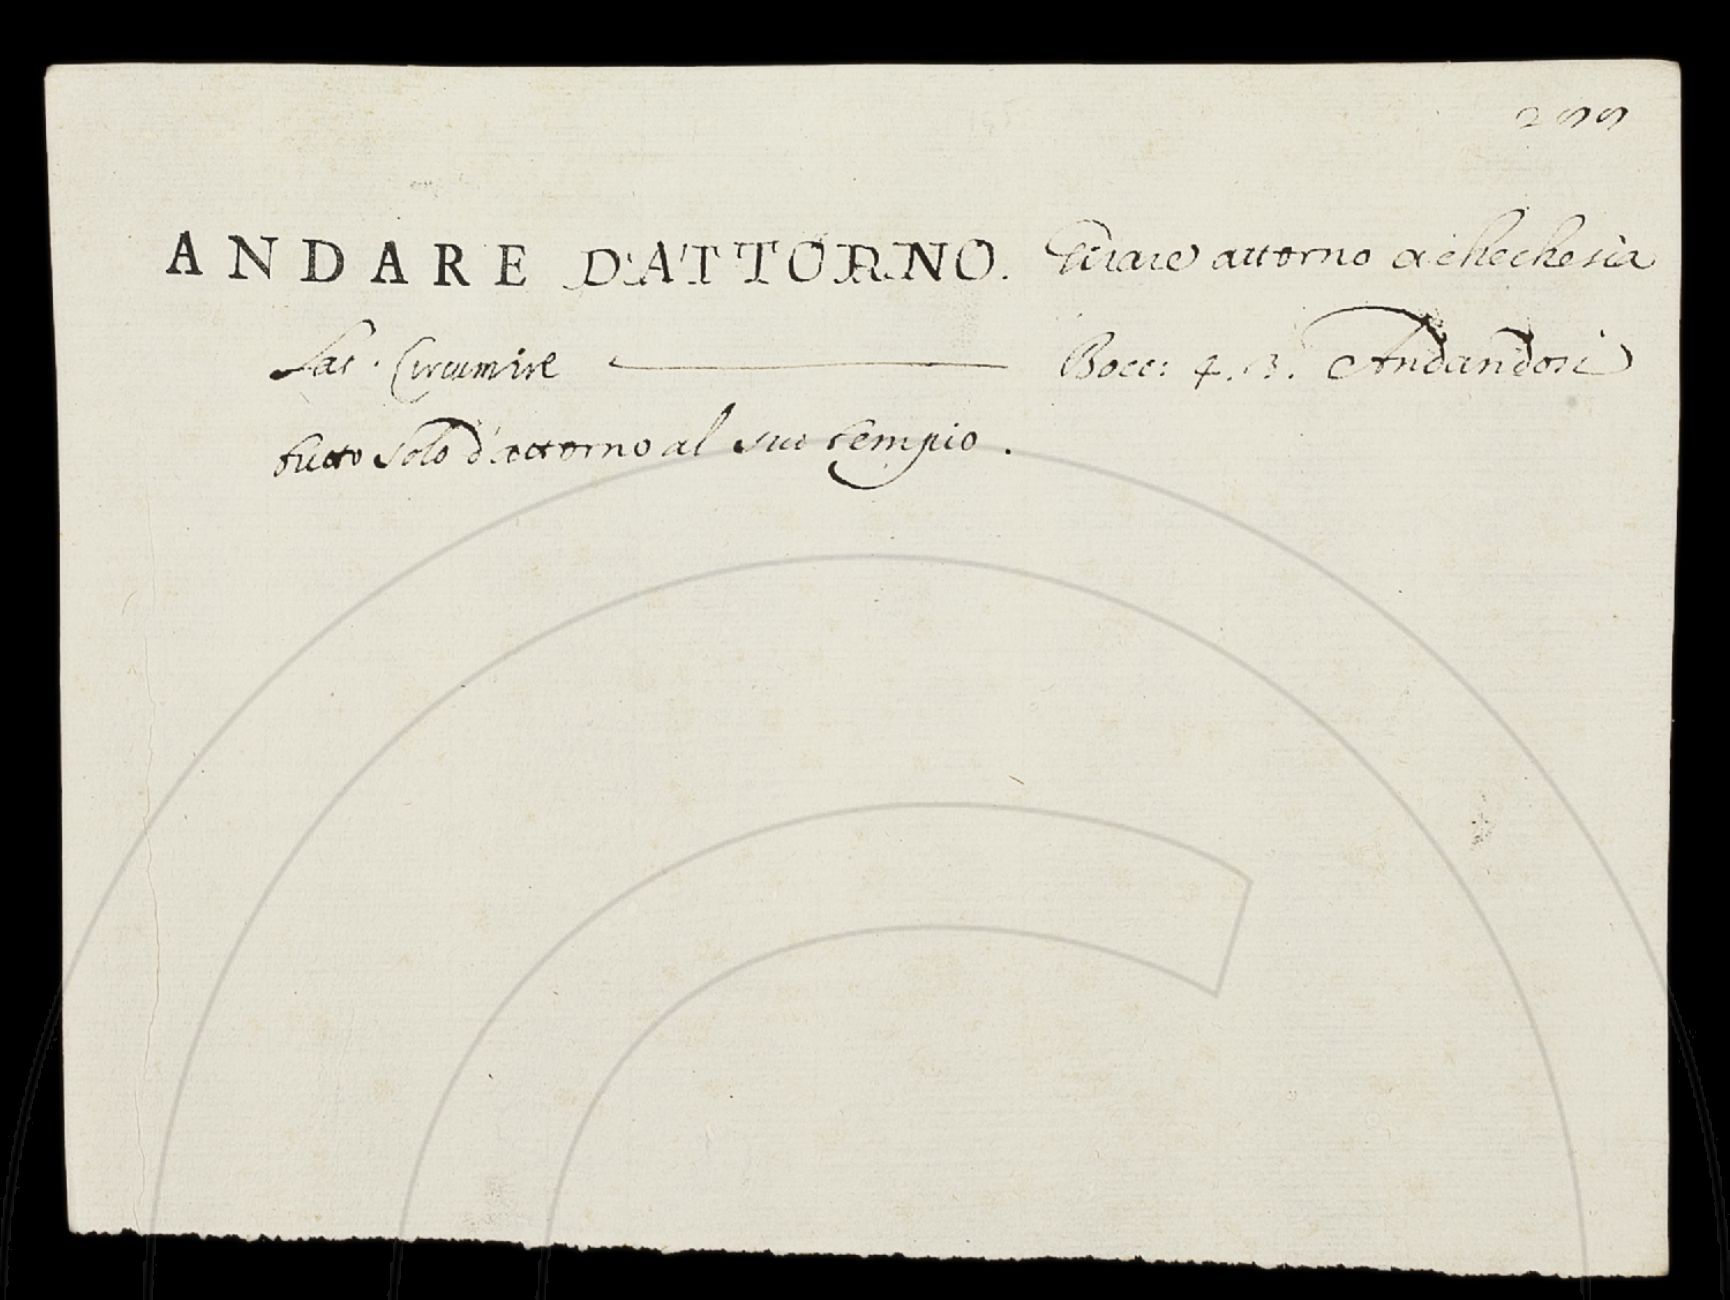 299
ANDARE D'ATTORNO. Girare attorno a chechesia
Lat. Circumire — Bocc: 4. 3. Andandosi
tutto solo d'attorno al suo tempio.